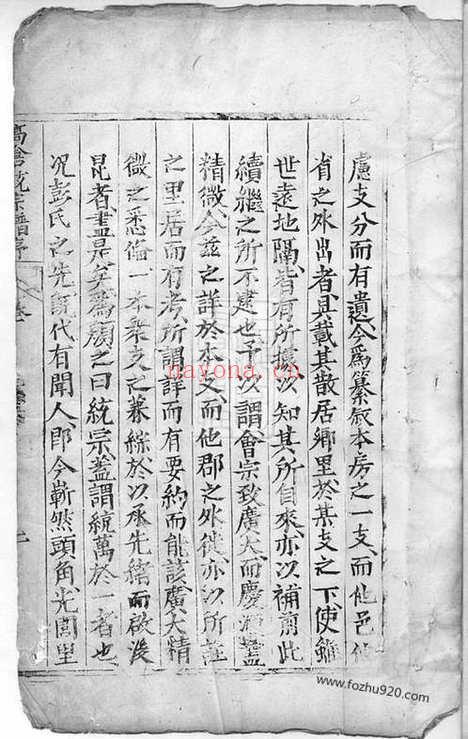 慮支分而有遺今爲纂叙本房之一支而他邑他
省之外出者具載其散居鄉里於某支之下使雖
世遠地隔皆有所據以知其所自來亦以補前此
續繼之所不逮也予以謂會宗致廣大而慶源盡
精微今茲之詳於本支而他郡之外徙亦以所註
之里居而有考所謂詳而有要約而能該廣大精
微之悉俻一本衆支之綜於以承先緒而啟後
昆者盡是矣爲額之曰統宗蓋謂統萬於一者也
况彭氏之先說代有聞人郎今嶄然頭角光閭里
統宗譜序 卷一
nayona.cn
www.fozhu920.com